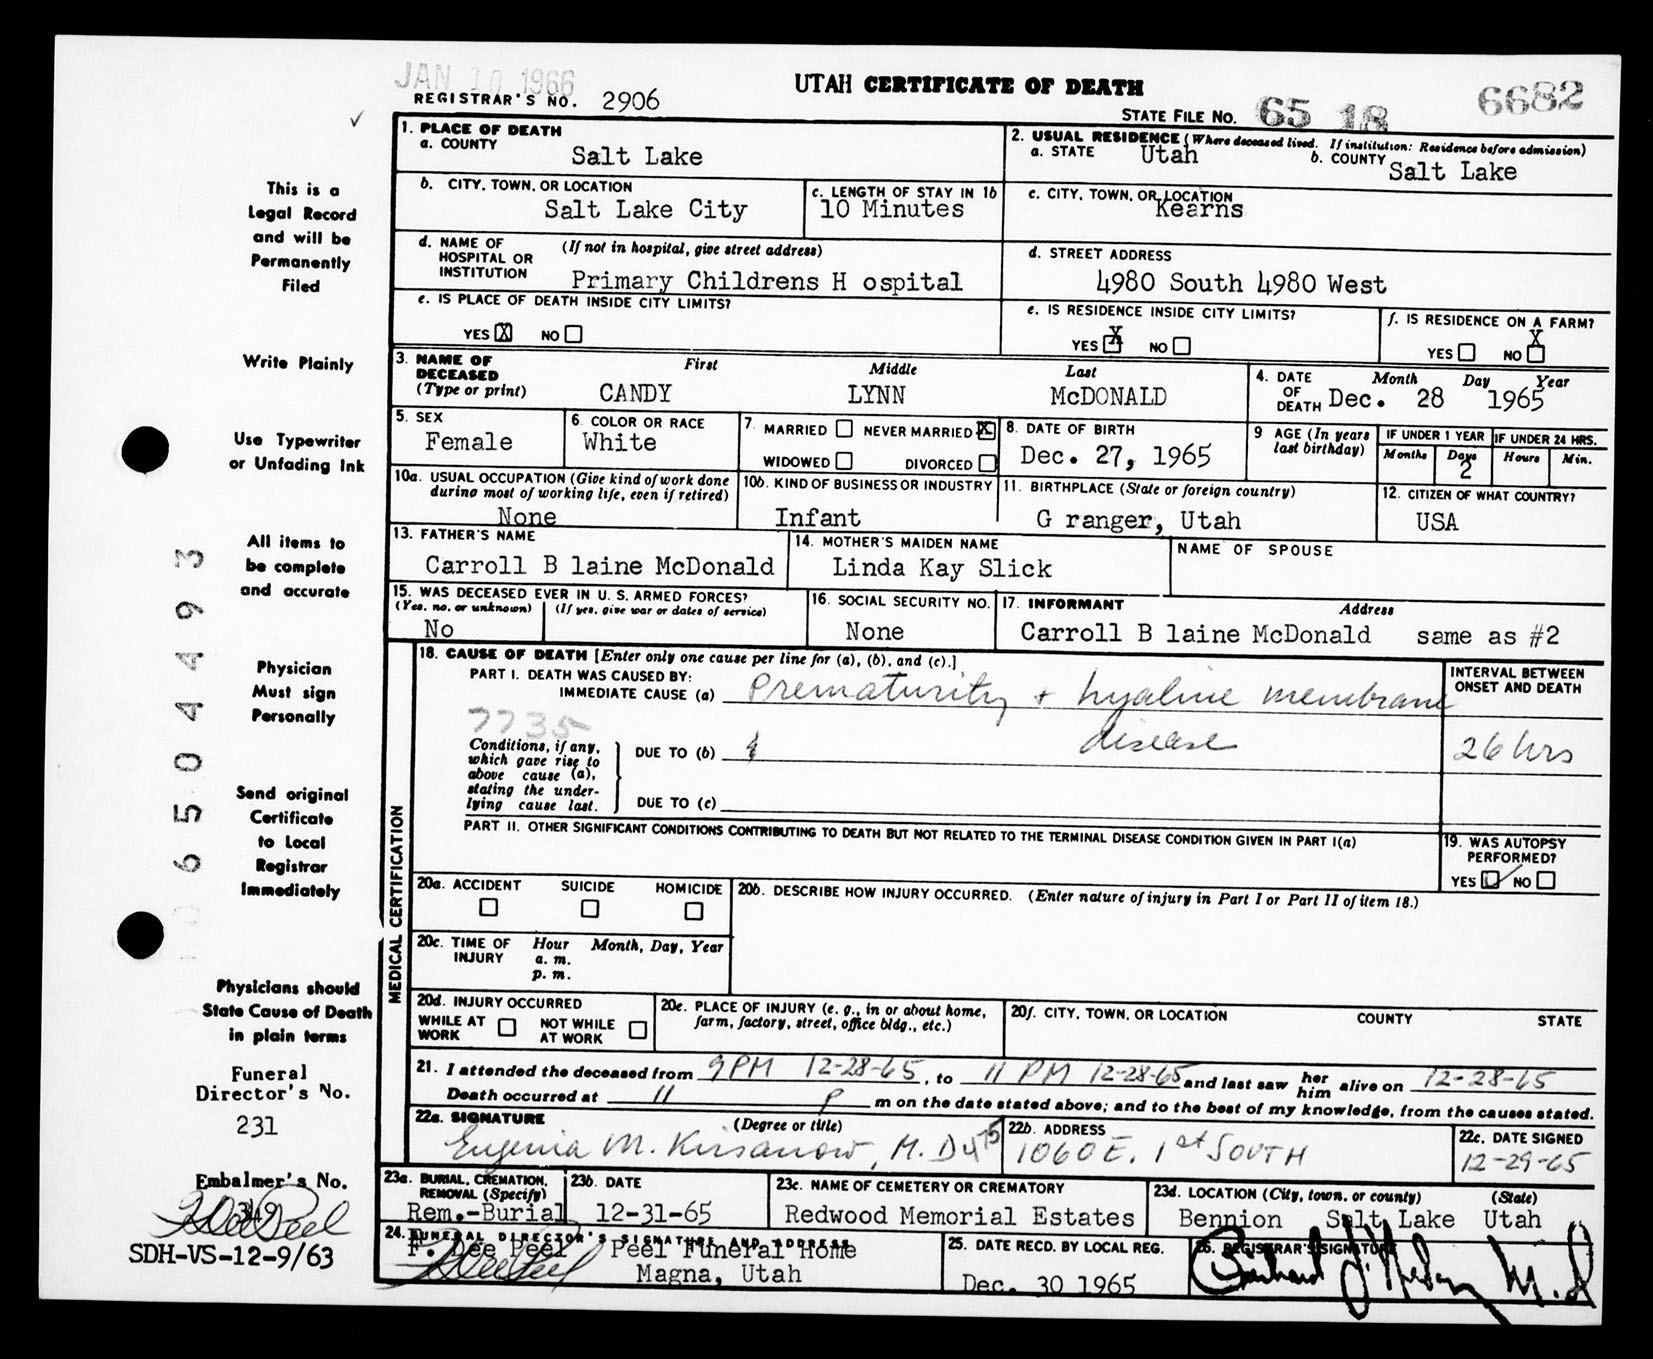 JAN 10 1966
UTAH CERTIFICATE OF DEATH
REGISTRAR'S NO. 2906
STATE FILE NO. 65 18 6682
1. PLACE OF DEATH
a. COUNTY
Salt Lake
2. USUAL RESIDENCE (Where deceased lived. If institution: Residence before admission)
a. STATE Utah b. COUNTY Salt Lake
b. CITY, TOWN, OR LOCATION
Salt Lake City
c. LENGTH OF STAY IN 1b
10 Minutes
c. CITY, TOWN, OR LOCATION
Kearns
d. NAME OF HOSPITAL OR INSTITUTION (If not in hospital, give street address)
Primary Childrens H ospital
d. STREET ADDRESS
4980 South 4980 West
e. IS PLACE OF DEATH INSIDE CITY LIMITS?
YES X NO
e. IS RESIDENCE INSIDE CITY LIMITS?
YES X NO
f. IS RESIDENCE ON A FARM?
YES NO X
3. NAME OF DECEASED (Type or print)
First Middle Last
CANDY LYNN McDONALD
4. DATE OF DEATH Month Day Year
Dec. 28 1965
5. SEX
Female
6. COLOR OR RACE
White
7. MARRIED NEVER MARRIED X
WIDOWED DIVORCED
8. DATE OF BIRTH
Dec. 27, 1965
9 AGE (In years last birthday)
IF UNDER 1 YEAR IF UNDER 24 HRS.
Months Days Hours Min.
2
10a. USUAL OCCUPATION (Give kind of work done during most of working life, even if retired)
None
10b. KIND OF BUSINESS OR INDUSTRY
Infant
11. BIRTHPLACE (State or foreign country)
G ranger, Utah
12. CITIZEN OF WHAT COUNTRY?
USA
13. FATHER'S NAME
Carroll B laine McDonald
14. MOTHER'S MAIDEN NAME
Linda Kay Slick
NAME OF SPOUSE
15. WAS DECEASED EVER IN U. S. ARMED FORCES?
(Yes, no, or unknown) (If yes, give war or dates of service)
No
16. SOCIAL SECURITY NO.
None
17. INFORMANT Address
Carroll B laine McDonald same as #2
MEDICAL CERTIFICATION
18. CAUSE OF DEATH [Enter only one cause per line for (a), (b), and (c).]
PART I. DEATH WAS CAUSED BY:
IMMEDIATE CAUSE (a) Prematurity + hyaline membrane
INTERVAL BETWEEN ONSET AND DEATH
7735
Conditions, if any, which gave rise to above cause (a), stating the underlying cause last.
DUE TO (b) disease
26 hrs
DUE TO (c)
PART II. OTHER SIGNIFICANT CONDITIONS CONTRIBUTING TO DEATH BUT NOT RELATED TO THE TERMINAL DISEASE CONDITION GIVEN IN PART I(a)
19. WAS AUTOPSY PERFORMED?
YES ✓ NO
20a. ACCIDENT SUICIDE HOMICIDE
20b. DESCRIBE HOW INJURY OCCURRED. (Enter nature of injury in Part I or Part II of item 18.)
20c. TIME OF INJURY Hour Month, Day, Year
a. m.
p. m.
20d. INJURY OCCURRED
WHILE AT WORK NOT WHILE AT WORK
20e. PLACE OF INJURY (e. g., in or about home, farm, factory, street, office bldg., etc.)
20f. CITY, TOWN, OR LOCATION COUNTY STATE
21. I attended the deceased from 9PM 12-28-65, to 11 PM 12-28-65 and last saw her him alive on 12-28-65
Death occurred at 11 P m on the date stated above; and to the best of my knowledge, from the causes stated.
22a. SIGNATURE (Degree or title)
Eugenia M. Kirsanow, M.D.
22b. ADDRESS
1060 E. 1st SOUTH
22c. DATE SIGNED
12-29-65
23a. BURIAL, CREMATION, REMOVAL (Specify)
Rem.-Burial
23b. DATE
12-31-65
23c. NAME OF CEMETERY OR CREMATORY
Redwood Memorial Estates
23d. LOCATION (City, town, or county) (State)
Bennion Salt Lake Utah
24. FUNERAL DIRECTOR'S SIGNATURE AND ADDRESS
F. Dee Peel Peel Funeral Home
Magna, Utah
25. DATE RECD. BY LOCAL REG.
Dec. 30 1965
26. REGISTRAR'S SIGNATURE
This is a
Legal Record
and will be
Permanently
Filed
Write Plainly
Use Typewriter
or Unfading Ink
All items to
be complete
and accurate
Physician
Must sign
Personally
Send original
Certificate
to Local
Registrar
Immediately
Physicians should
State Cause of Death
in plain terms
Funeral
Director's No.
231
Embalmer's No.
SDH-VS-12-9/63
6504493